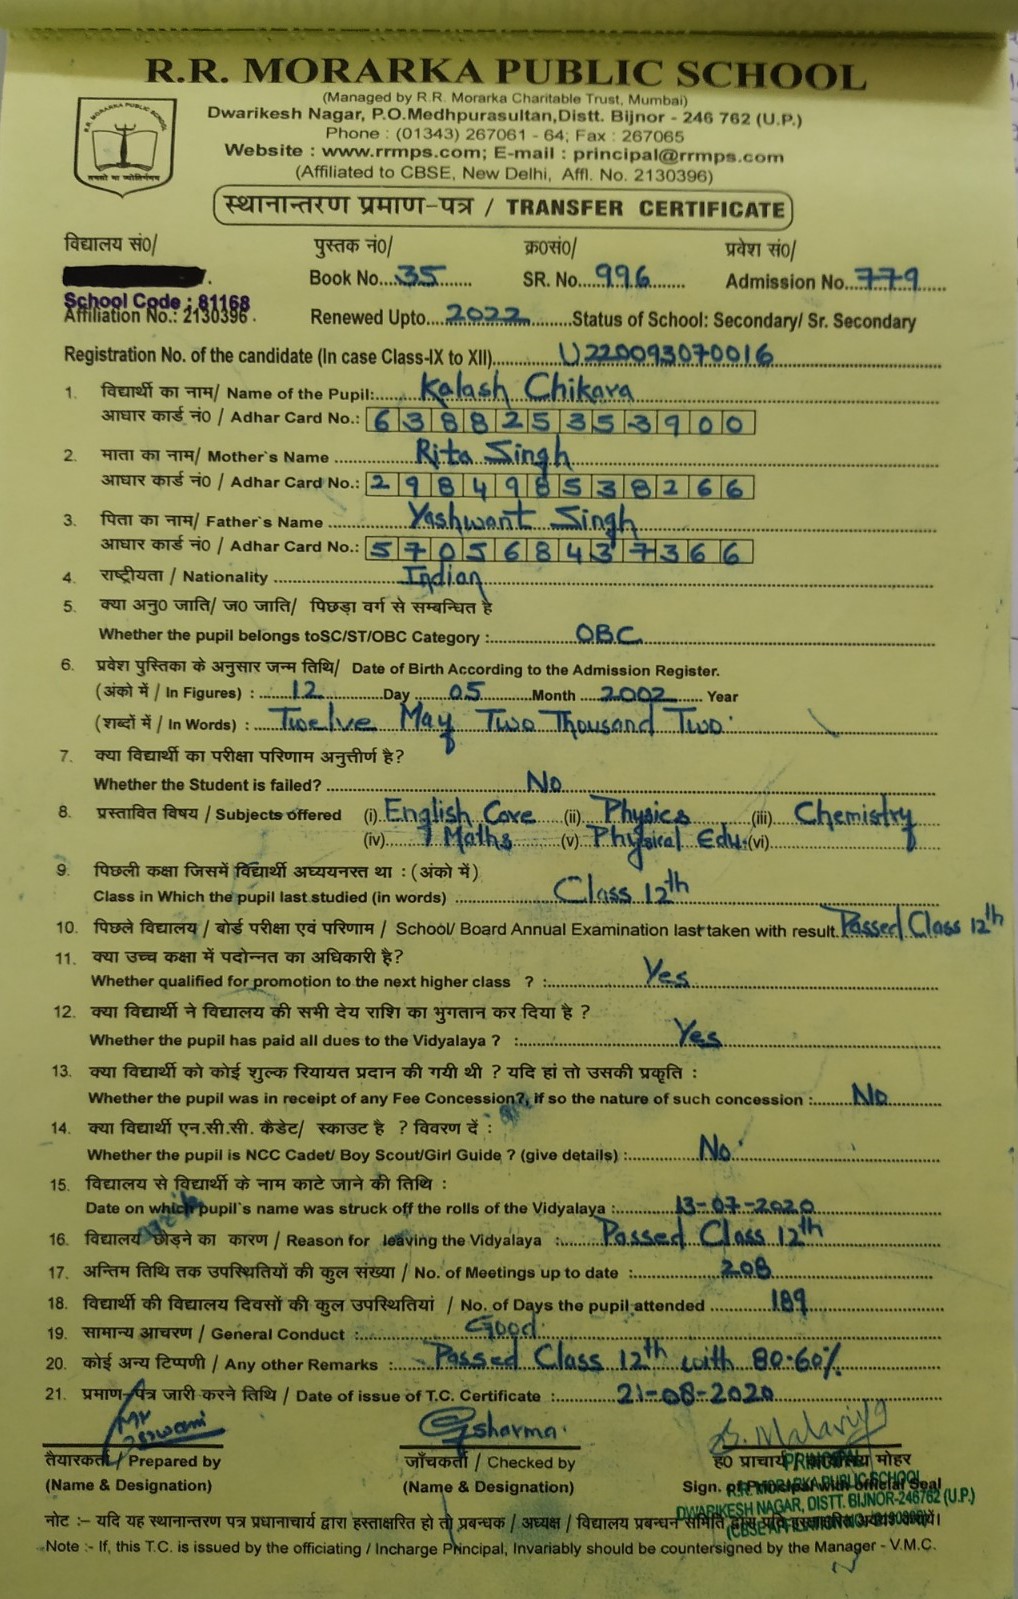 R.R. MORARKA PUBLIC SCHOOL
(Managed by R.R. Morarka Charitable Trust, Mumbai)
Dwarikesh Nagar, P.O.Medhpurasultan,Distt. Bijnor - 246 762 (U.P.)
Phone : (01343) 267061 - 64; Fax : 267065
Website : www.rrmps.com; E-mail : principal@rrmps.com
(Affiliated to CBSE, New Delhi, Affl. No. 2130396)
R.R. MORARKA PUBLIC SCHOOL
तमसो मा ज्योतिर्गमय
स्थानान्तरण प्रमाण-पत्र / TRANSFER CERTIFICATE
विद्यालय सं०/ पुस्तक नं०/ क्र०सं०/ प्रवेश सं०/
Book No. 35 SR. No. 996 Admission No. 779
School Code : 81168
Affiliation No.: 2130396 Renewed Upto 2022 Status of School: Secondary/ Sr. Secondary
Registration No. of the candidate (In case Class-IX to XII) U220093070016
1. विद्यार्थी का नाम/ Name of the Pupil: Kalash Chikara
आधार कार्ड नं० / Adhar Card No.: 638825353900
2. माता का नाम/ Mother's Name Rita Singh
आधार कार्ड नं० / Adhar Card No.: 298498538266
3. पिता का नाम/ Father's Name Yashwant Singh
आधार कार्ड नं० / Adhar Card No.: 570568437366
4. राष्ट्रीयता / Nationality Indian
5. क्या अनु० जाति/ ज० जाति/ पिछड़ा वर्ग से सम्बन्धित है
Whether the pupil belongs toSC/ST/OBC Category : OBC
6. प्रवेश पुस्तिका के अनुसार जन्म तिथि/ Date of Birth According to the Admission Register.
(अंको में / In Figures) : 12 Day 05 Month 2002 Year
(शब्दों में / In Words) : Twelve May Two Thousand Two
7. क्या विद्यार्थी का परीक्षा परिणाम अनुत्तीर्ण है?
Whether the Student is failed? No
8. प्रस्तावित विषय / Subjects offered (i) English Core (ii) Physics (iii) Chemistry
(iv) Maths (v) Physical Edu. (vi)
9. पिछली कक्षा जिसमें विद्यार्थी अध्ययनरत था : (अंको में)
Class in Which the pupil last studied (in words) Class 12th
10. पिछले विद्यालय / बोर्ड परीक्षा एवं परिणाम / School/ Board Annual Examination last taken with result. Passed Class 12th
11. क्या उच्च कक्षा में पदोन्नत का अधिकारी है?
Whether qualified for promotion to the next higher class ? : Yes
12. क्या विद्यार्थी ने विद्यालय की सभी देय राशि का भुगतान कर दिया है ?
Whether the pupil has paid all dues to the Vidyalaya ? : Yes
13. क्या विद्यार्थी को कोई शुल्क रियायत प्रदान की गयी थी ? यदि हां तो उसकी प्रकृति :
Whether the pupil was in receipt of any Fee Concession?, if so the nature of such concession : No
14. क्या विद्यार्थी एन.सी.सी. कैडेट/ स्काउट है ? विवरण दें :
Whether the pupil is NCC Cadet/ Boy Scout/Girl Guide ? (give details) : No
15. विद्यालय से विद्यार्थी के नाम काटे जाने की तिथि :
Date on which pupil's name was struck off the rolls of the Vidyalaya : 13-07-2020
16. विद्यालय छोड़ने का कारण / Reason for leaving the Vidyalaya : Passed Class 12th
17. अन्तिम तिथि तक उपस्थितियों की कुल संख्या / No. of Meetings up to date : 208
18. विद्यार्थी की विद्यालय दिवसों की कुल उपस्थितियां / No. of Days the pupil attended 189
19. सामान्य आचरण / General Conduct : Good
20. कोई अन्य टिप्पणी / Any other Remarks : Passed Class 12th with 80.60%
21. प्रमाण-पत्र जारी करने तिथि / Date of issue of T.C. Certificate : 21-08-2020
Gsharma
तैयारकर्ता / Prepared by जाँचकर्ता / Checked by ह० प्राचार्य मोहर
(Name & Designation) (Name & Designation) Sign. of Principal with official Seal
PRINCIPAL
R.R. MORARKA PUBLIC SCHOOL
DWARIKESH NAGAR, DISTT. BIJNOR-246762 (U.P.)
नोट :- यदि यह स्थानान्तरण पत्र प्रधानाचार्य द्वारा हस्ताक्षरित हो तो प्रबन्धक / अध्यक्ष / विद्यालय प्रबन्धन समिति द्वारा
Note :- If, this T.C. is issued by the officiating / Incharge Principal, Invariably should be countersigned by the Manager - V.M.C.